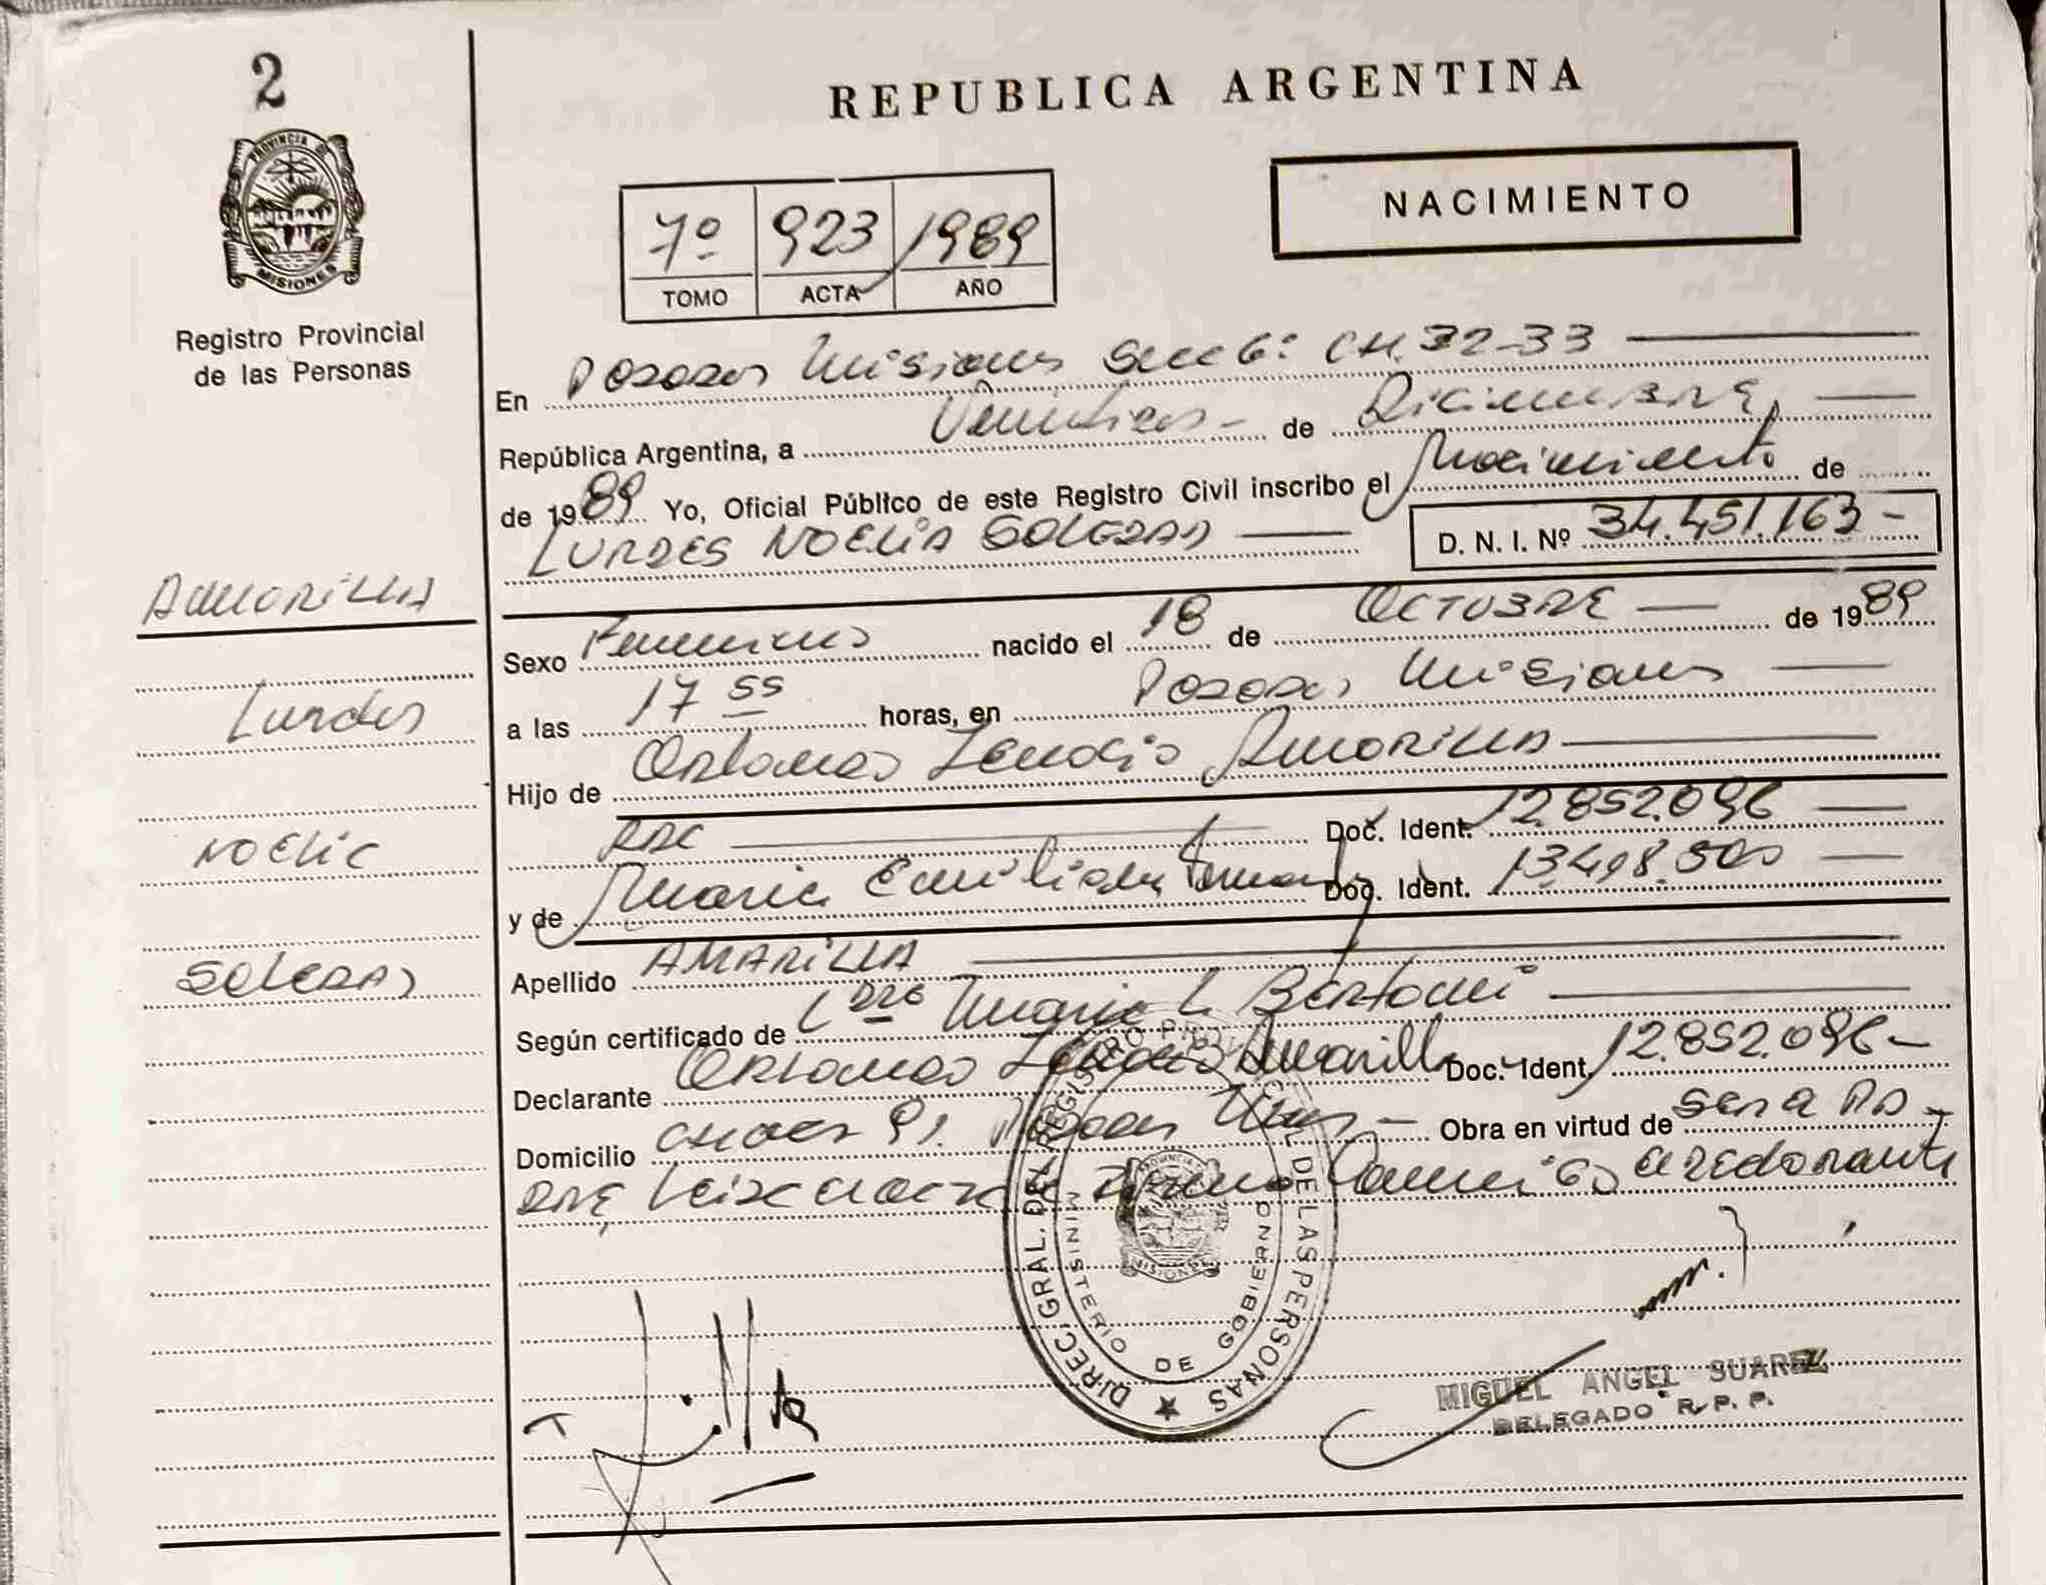 2
PROVINCIA DE
MISIONES
Registro Provincial
de las Personas
AMARILLA
Lurdes
NOELIA
SOLEDAD
REPUBLICA ARGENTINA
NACIMIENTO
7º 923 1989
TOMO ACTA AÑO
En Posadas Misiones Secc 6º CH. 32-33
República Argentina, a de Diciembre
de 1989 Yo, Oficial Público de este Registro Civil inscribo el Nacimiento de
LURDES NOELIA SOLEDAD D. N. I. Nº 34.451.163-
Sexo Femenino nacido el 18 de OCTUBRE de 1989
a las 17 55 horas, en Posadas Misiones
Hijo de Orlando AMARILLA
Doc. Ident. 12.852.096
y de Maria Doc. Ident. 13.498.500
Apellido AMARILLA
Según certificado de Maria L
Declarante Orlando Amarilla Doc. Ident. 12.852.096-
Domicilio Obra en virtud de
DIREC. GRAL. DEL REGISTRO PROVINCIAL DE LAS PERSONAS
MINISTERIO DE GOBIERNO
PROVINCIA DE
MISIONES
MIGUEL ANGEL SUAREZ
DELEGADO R. P. P.